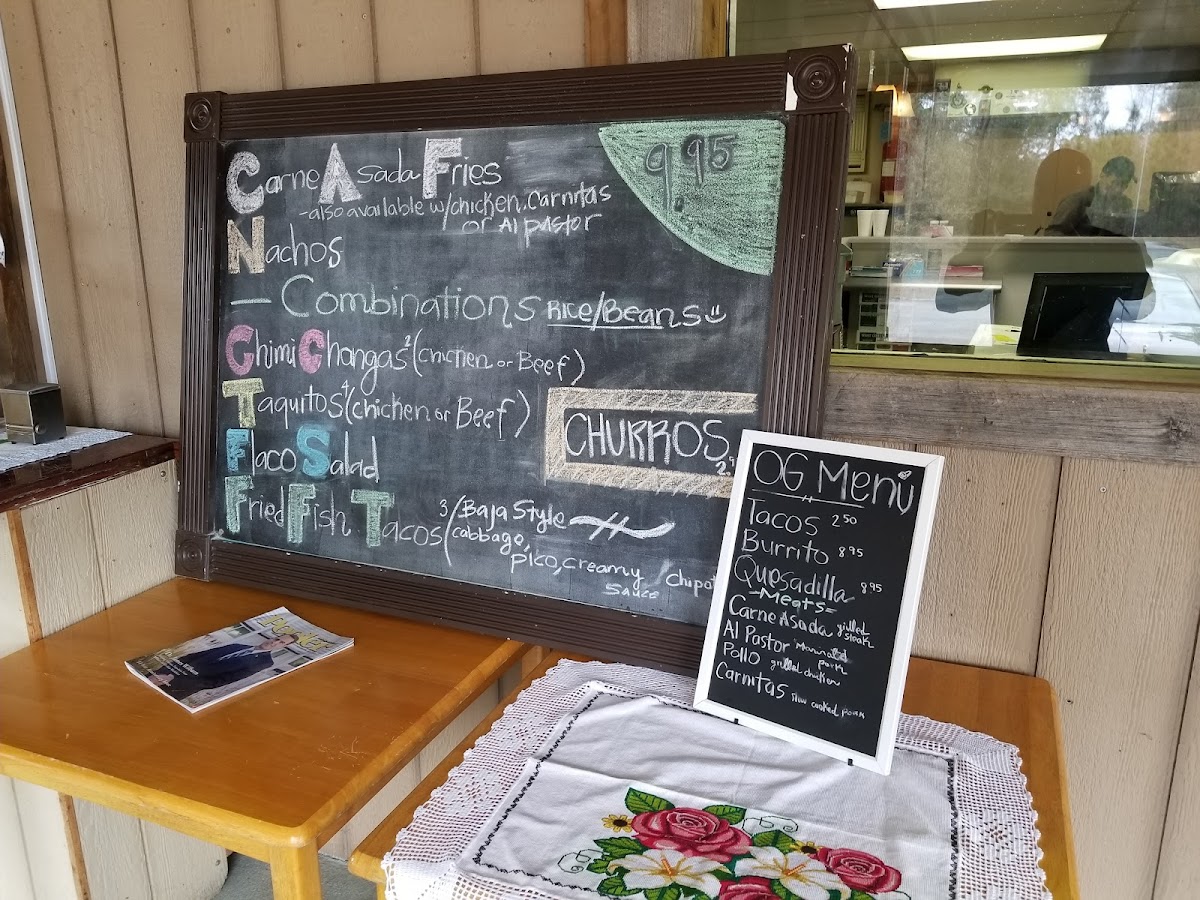 Carne Asada Fries
9.95
-also available w/chicken, Carnitas
or Al pastor
Nachos
- Combinations Rice/Beans
ChimiChangas 2 (chicken or Beef)
Taquitos 4 (chicken or Beef)
CHURROS
Flaco Salad
Fried Fish Tacos 3 (Baja Style
cabbage,
pico, creamy
sauce
OG Menu
Tacos 2.50
Burrito 8.95
Quesadilla 8.95
-Meats-
Carne Asada grilled
steak
Al Pastor
pork
Pollo grilled chicken
Carnitas slow cooked pork